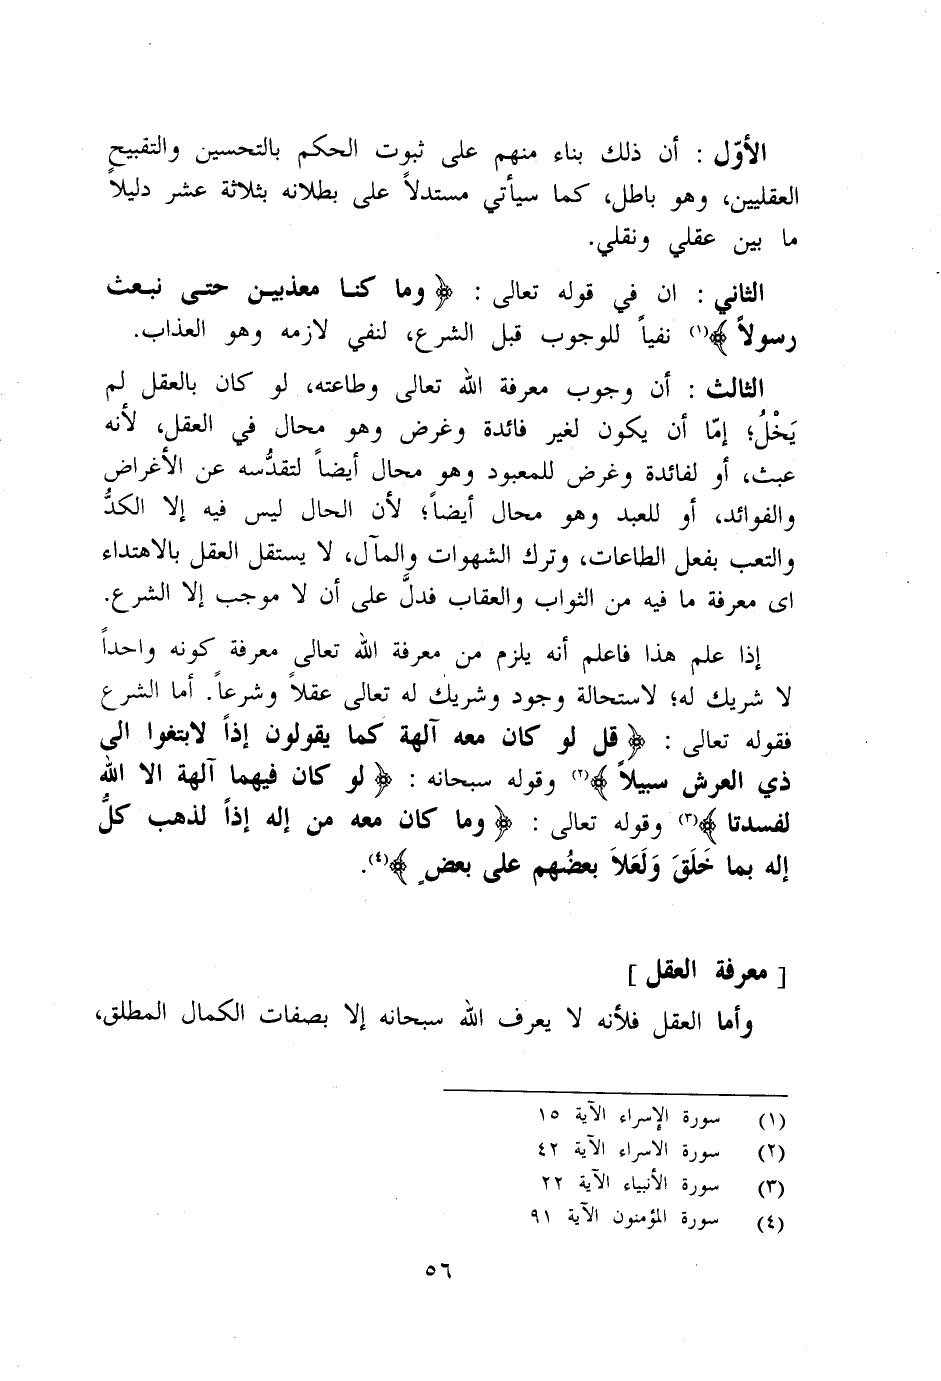 الأوّل : أن ذلك بناء منهم على ثبوت الحكم بالتحسين والتقبيح
العقليين، وهو باطل، كما سيأتي مستدلاً على بطلانه بثلاثة عشر دليلاً
ما بين عقلي ونقلي.
الثاني : ان في قوله تعالى : ﴿ وما كنا معذبين حتى نبعث
رسولاً ﴾(١) نفياً للوجوب قبل الشرع، لنفي لازمه وهو العذاب.
الثالث : أن وجوب معرفة الله تعالى وطاعته، لو كان بالعقل لم
يَخْلُ؛ إمّا أن يكون لغير فائدة وغرض وهو محال في العقل، لأنه
عبث، أو لفائدة وغرض للمعبود وهو محال أيضاً لتقدُّسه عن الأغراض
والفوائد، أو للعبد وهو محال أيضاً؛ لأن الحال ليس فيه إلا الكدُّ
والتعب بفعل الطاعات، وترك الشهوات والمآل، لا يستقل العقل بالاهتداء
اى معرفة ما فيه من الثواب والعقاب فدلَّ على أن لا موجب إلا الشرع.
إذا علم هذا فاعلم أنه يلزم من معرفة الله تعالى معرفة كونه واحداً
لا شريك له؛ لاستحالة وجود وشريك له تعالى عقلاً وشرعاً. أما الشرع
فقوله تعالى : ﴿ قل لو كان معه آلهة كما يقولون إذاً لابتغوا الى
ذي العرش سبيلاً ﴾(٢) وقوله سبحانه : ﴿ لو كان فيهما آلهة الا الله
لفسدتا ﴾(٣) وقوله تعالى : ﴿ وما كان معه من إله إذاً لذهب كلُّ
إله بما خَلَقَ وَلَعَلاَ بعضُهم على بعضٍ ﴾(٤).
[ معرفة العقل ]
وأما العقل فلأنه لا يعرف الله سبحانه إلا بصفات الكمال المطلق،
(١) سورة الإسراء الآية ١٥
(٢) سورة الاسراء الآية ٤٢
(٣) سورة الأنبياء الآية ٢٢
(٤) سورة المؤمنون الآية ٩١
٥٦